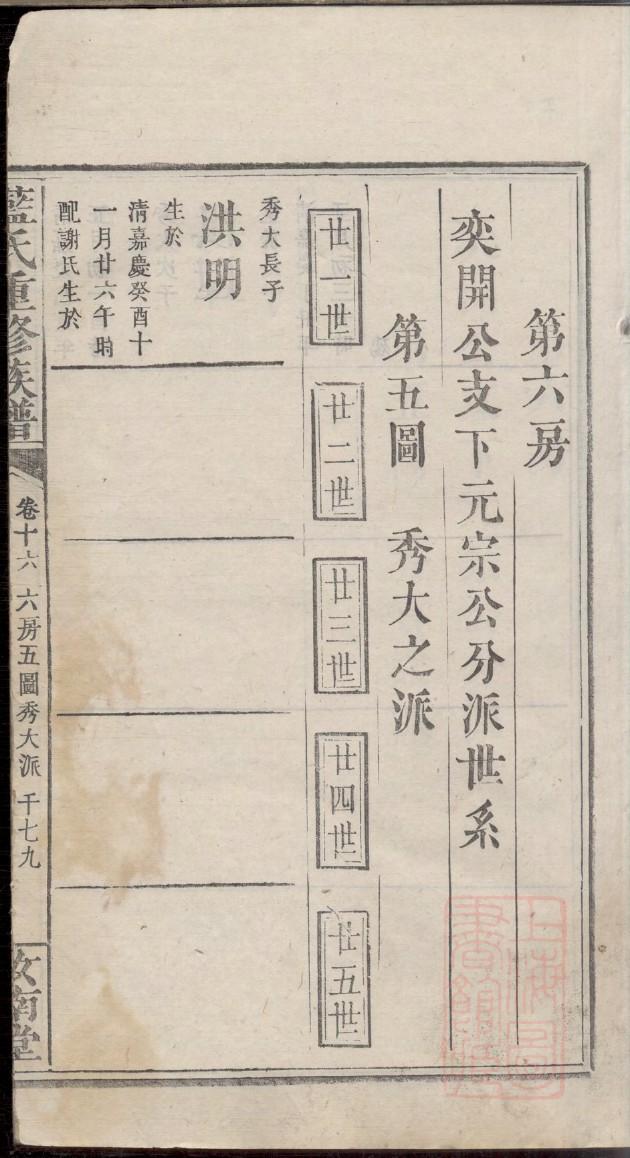 第六房
奕開公支下元宗公分派世系
第五圖　秀大之派
廿一世
廿二世
廿三世
廿四世
廿五世
秀大長子
洪明
生於
清嘉慶癸酉十
一月廿六午時
配謝氏生於
藍氏重修族譜
卷十六 六房五圖秀大派 千七九
汝南堂
上海圖書館藏